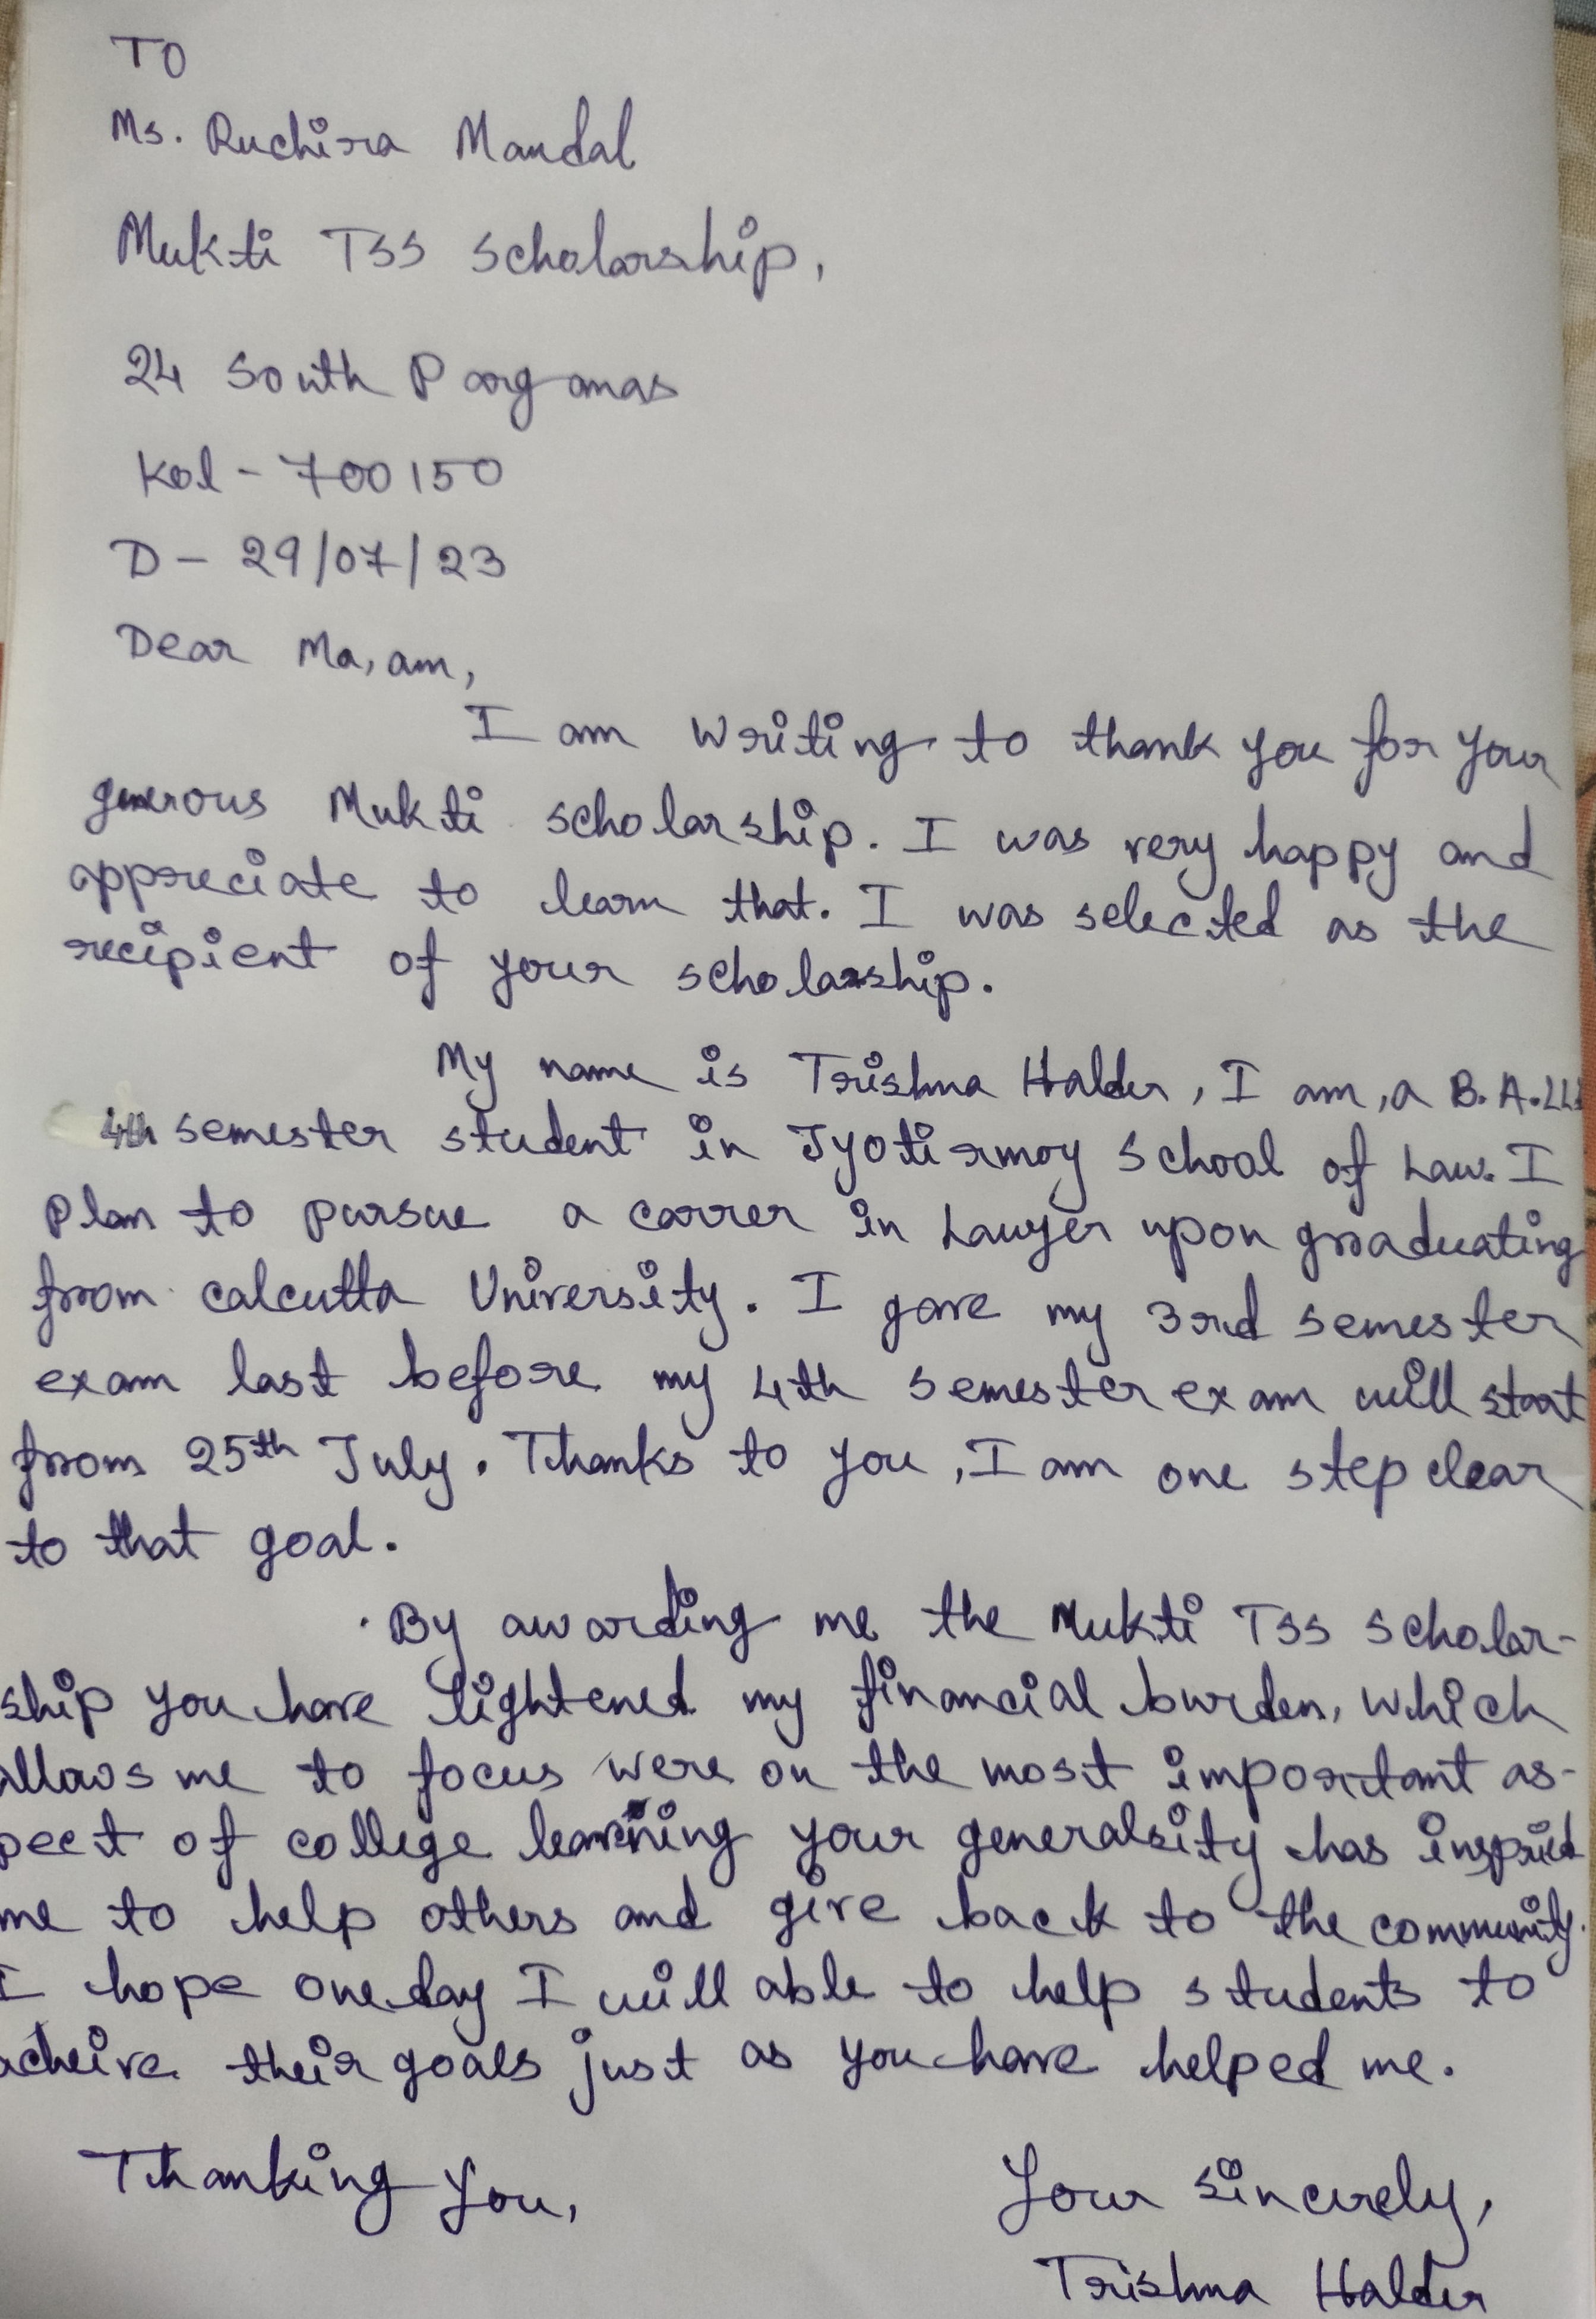 TO
Ms. Ruchira Mandal
Mukti TSS Scholarship,
24 South Parganas
Kol - 700150
D - 29/07/23
Dear Ma,am,
I am writing to thank you for your
generous Mukti scholarship. I was very happy and
appreciate to learn that. I was selected as the
recipient of your scholarship.
My name is Trishna Halder, I am, a B.A.LL
4th semester student in Jyotirmoy School of Law. I
plan to pursue a carrer in Lawyer upon graduating
from calcutta University. I gave my 3rd semester
exam last before my 4th semester exam will start
from 25th July. Thanks to you, I am one step clear
to that goal.
By awarding me the Mukti TSS Scholar-
ship you have lightened my financial burden, which
allows me to focus were on the most important as-
pect of college learning your generalsity has inspried
me to help others and give back to the community.
I hope one day I will able to help students to
acheive their goals just as you have helped me.
Thanking you,
Your sincerely,
Trishna Halder